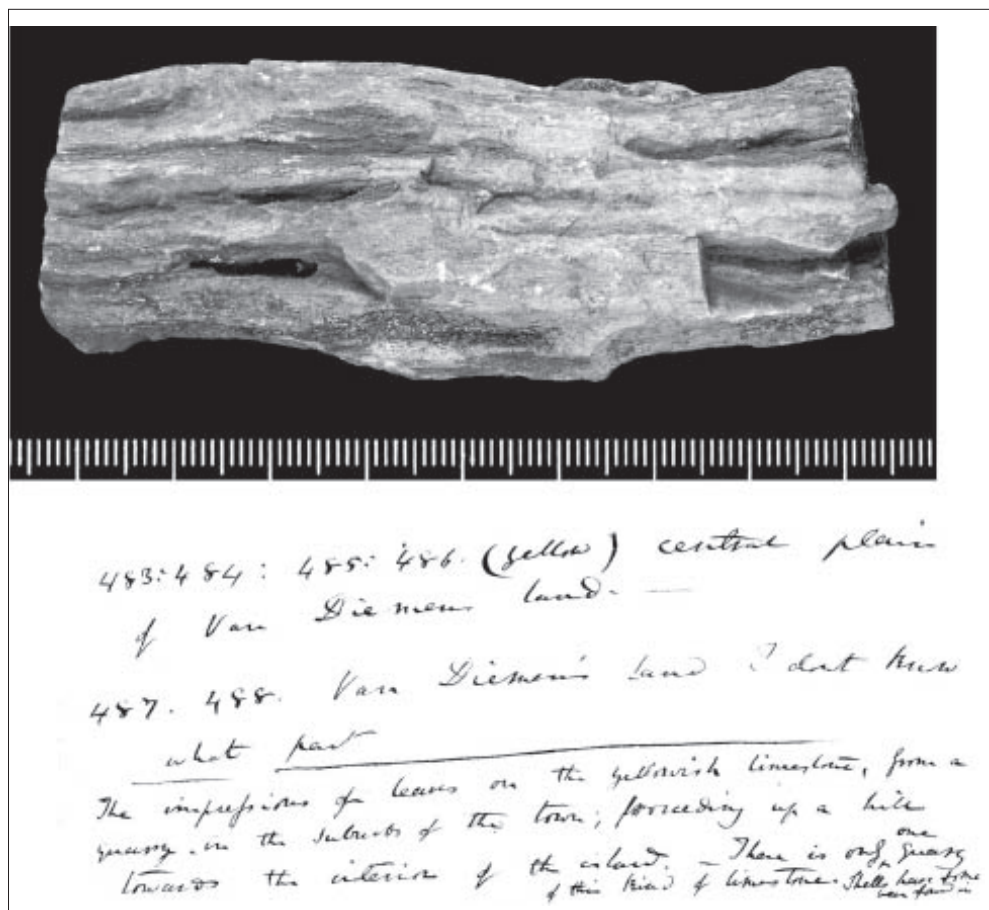 483: 484: 485: 486. (yellow) central plain
of Van Diemens land. —
487. 488. Van Diemen's land I dont know
what part
The impressions of leaves on the yellowish limestone, from a
quarry. in the suburbs of the town; proceeding up a hill
towards the interior of the island. — There is only one quarry
of this kind of limestone. Shells have some
been found in